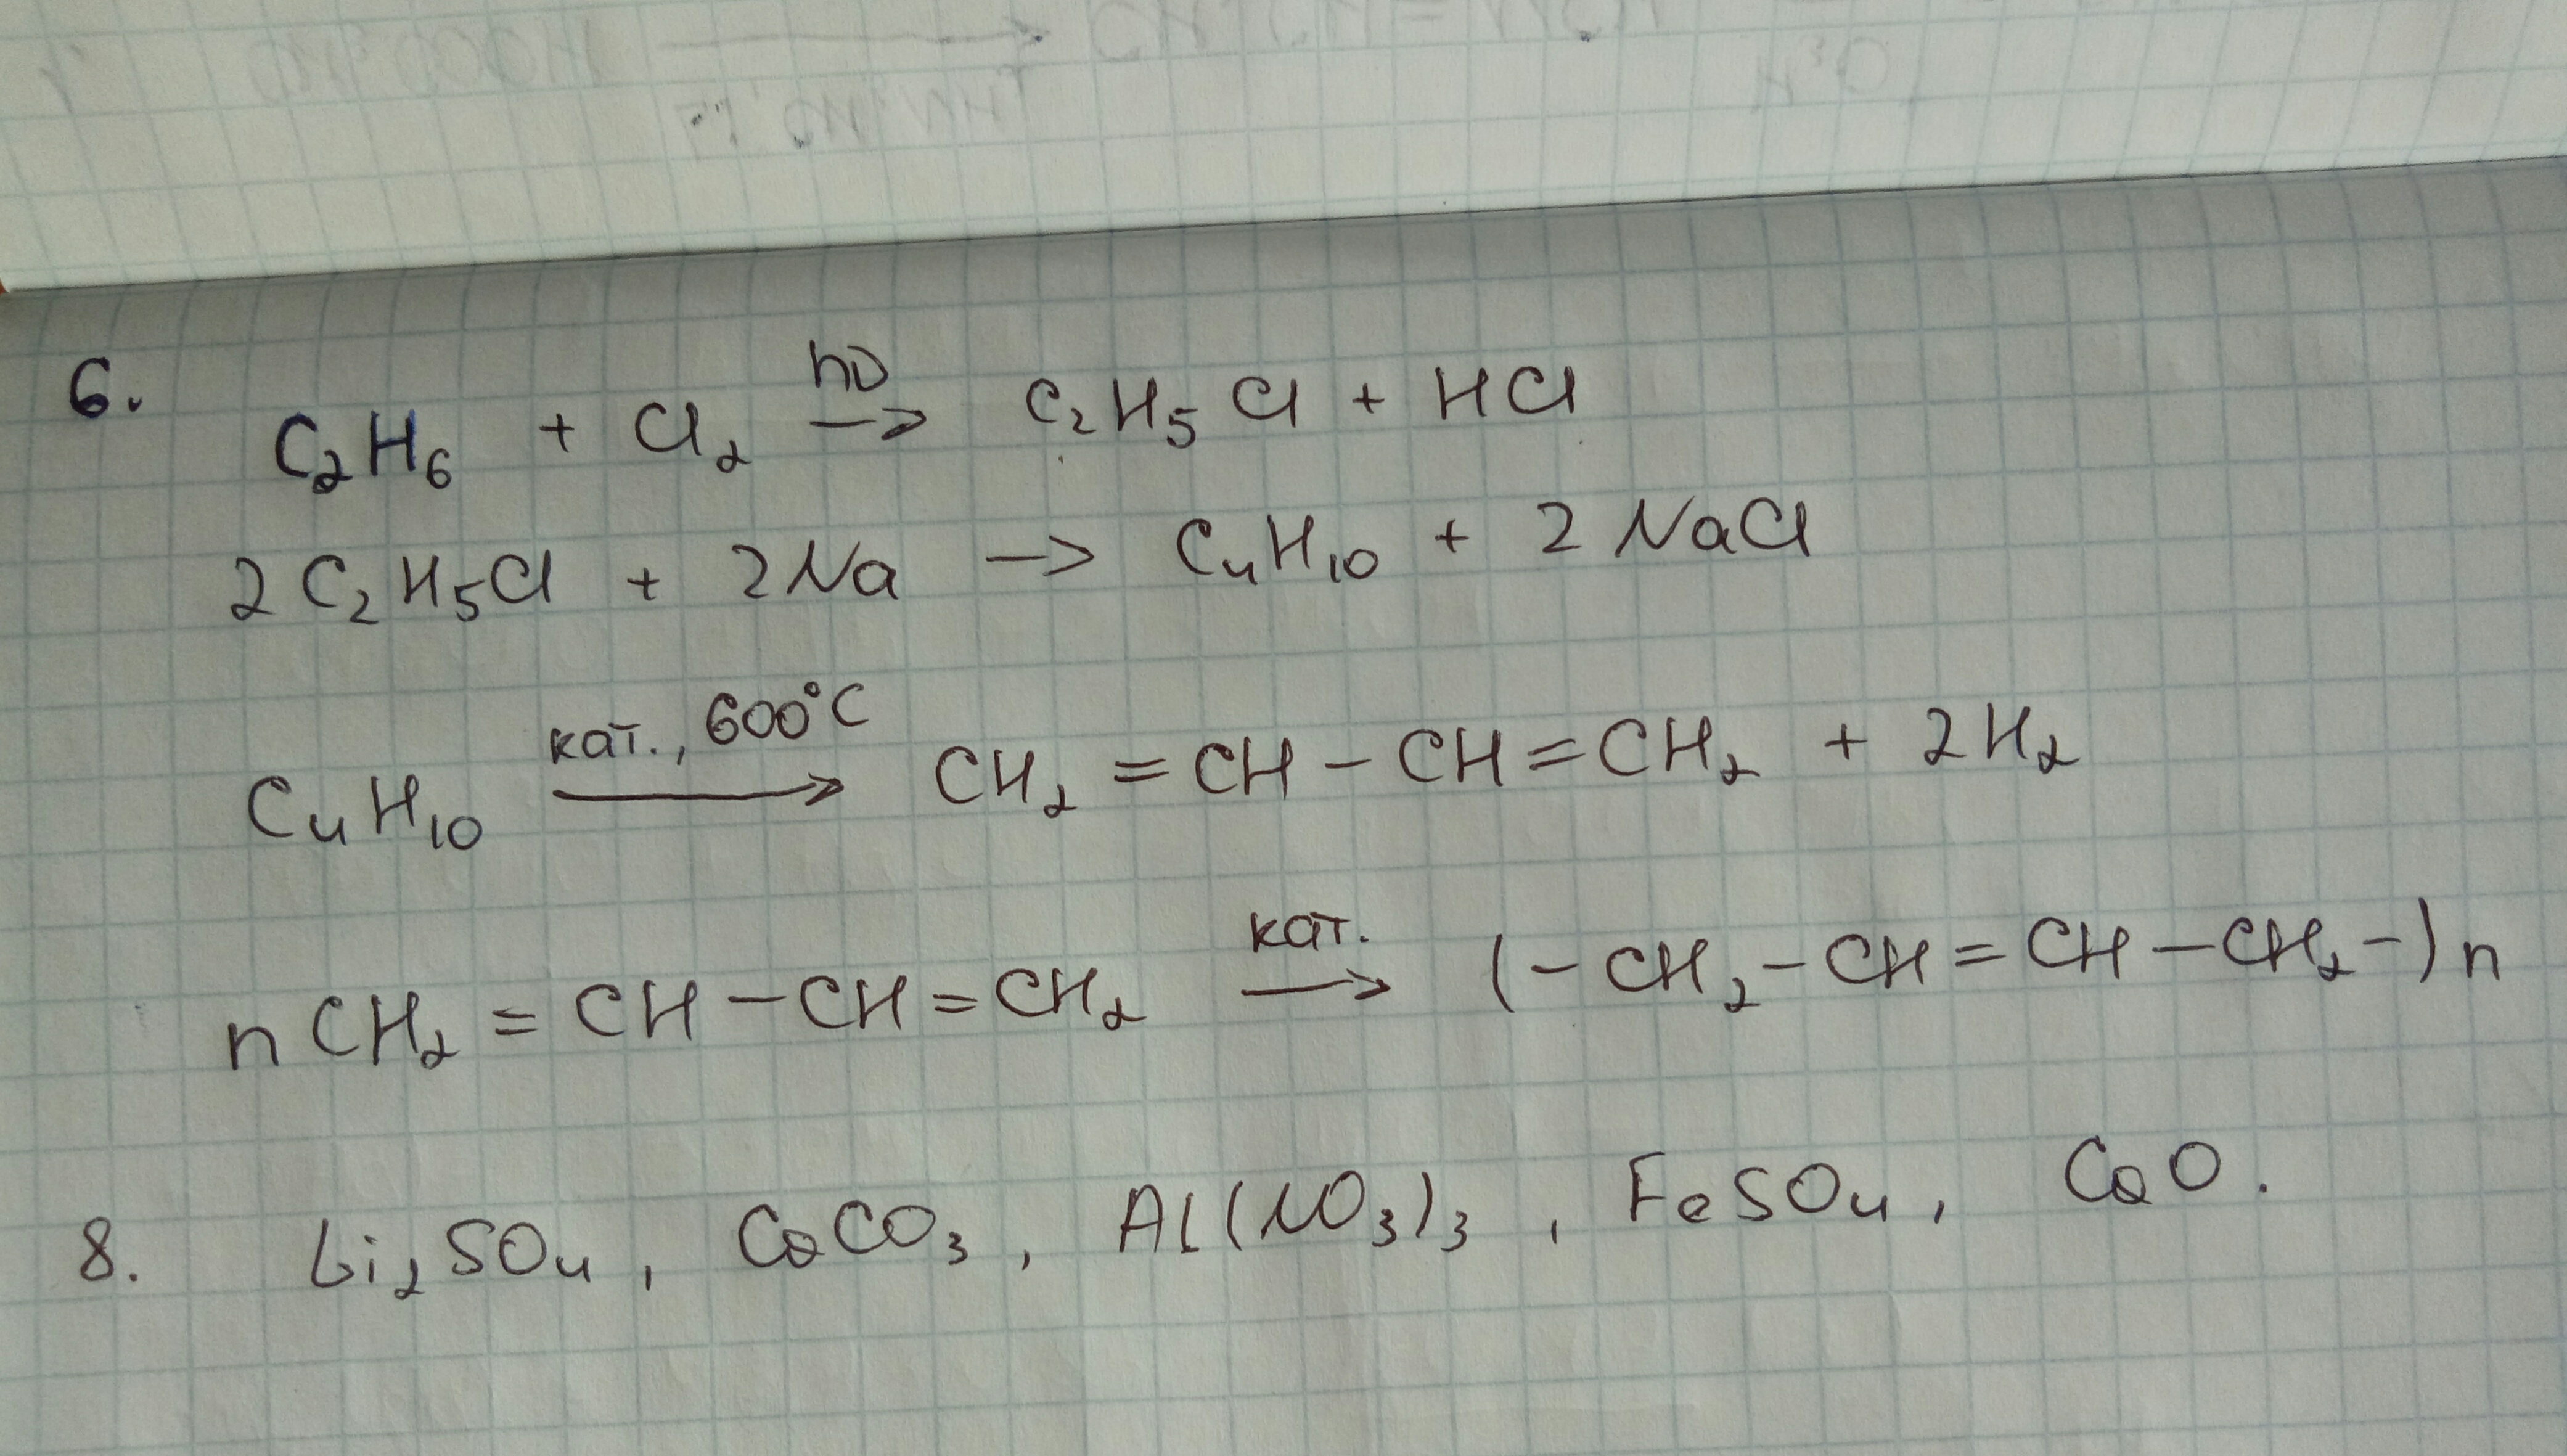 6.
C₂H₆ + Cl₂ →(hν) C₂H₅Cl + HCl
2C₂H₅Cl + 2Na → C₄H₁₀ + 2NaCl
C₄H₁₀ →(кат., 600°C) CH₂=CH–CH=CH₂ + 2H₂
nCH₂=CH–CH=CH₂ →(кат.) (–CH₂–CH=CH–CH₂–)n
8. Li₂SO₄, CaCO₃, Al(NO₃)₃, FeSO₄, CaO.